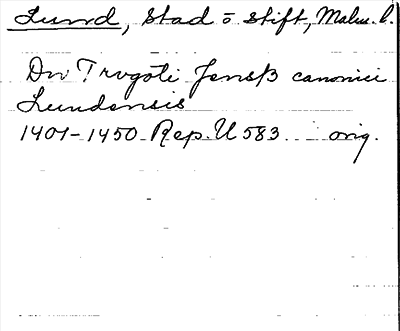 Lund, Stad o stift, Malm. l.
Dn Trvgoti Jenß canonici
Lundensis
1401-1450 Rep. U 583 orig.